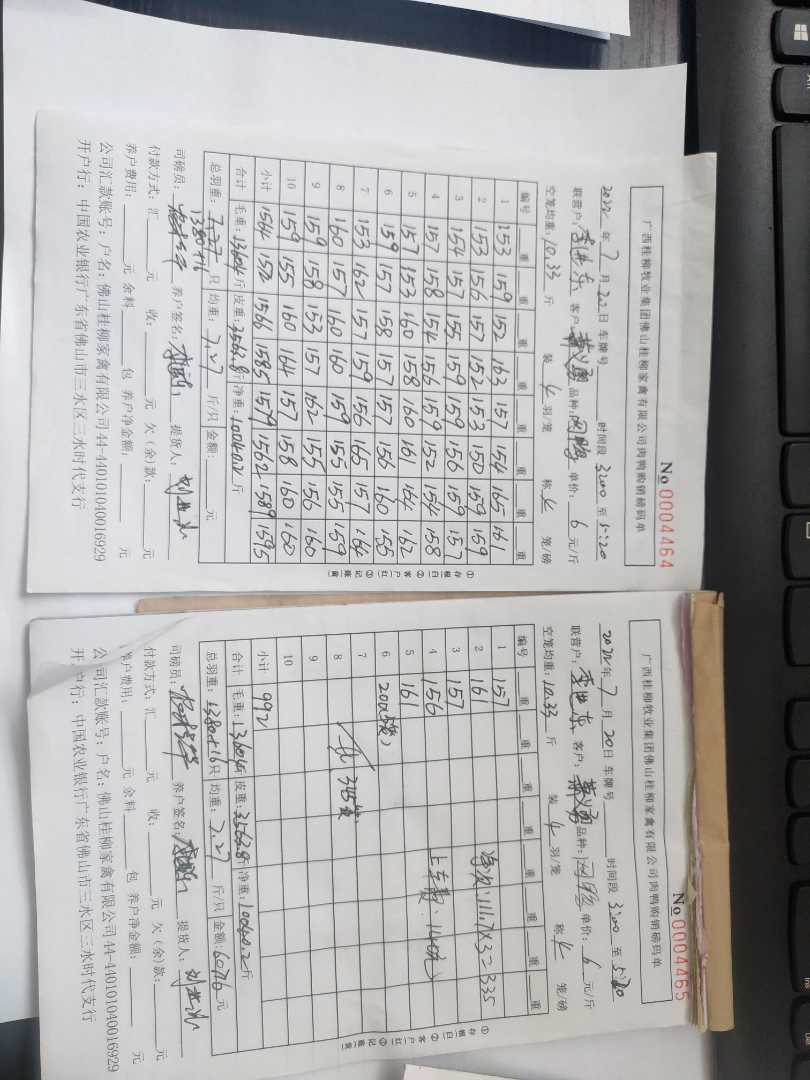 广西桂柳牧业集团佛山桂柳家禽有限公司肉鸭购销磅码单
No 0004464
2022 年 7 月 20 日 车牌号 时间段 3:00 至 5:20
联营户: 李世东 客户: 品种: 单价: 6 元/斤
空笼均重: 10.33 斤 装 4 羽/笼 称 4 笼/磅
编号 重 重 重 重 重 重 重 重
1 153 159 152 163 157 154 165 161
2 153 156 157 152 153 150 159 159
3 154 157 155 159 159 156 159 157
4 157 158 154 156 159 152 154 158
5 157 153 160 158 160 161 164 162
6 159 157 158 157 157 156 160 155
7 153 162 157 159 156 165 157 164
8 160 157 160 160 159 155 155 159
9 159 158 153 157 162 155 156 160
10 159 155 160 164 157 158 160 160
小计 1564 1572 1566 1585 1579 1562 1589 1595
合计 毛重: 13604 斤 皮重: 3563.8 斤 净重: 10040.2 斤
总羽重: 只 均重: 7.27 斤/只 金额: 元
1380+16
司磅员: 养户签名: 提货人:
付款方式: 汇 元 收: 元 欠(余)款: 元
养户费用: 元 余料 包 养户净金额: 元
公司汇款账号: 户名: 佛山桂柳家禽有限公司 44-440101040016929
开户行: 中国农业银行广东省佛山市三水区三水时代支行
①存根(白) ②客户(红) ③记账(黄)
广西桂柳牧业集团佛山桂柳家禽有限公司肉鸭购销磅码单
No 0004465
2022 年 7 月 20 日 车牌号 时间段 3:00 至 5:20
联营户: 李世东 客户: 品种: 单价: 6 元/斤
空笼均重: 10.33 斤 装 4 羽/笼 称 4 笼/磅
编号 重 重 重 重 重 重 重 重
1 157
2 161
3 157
4 156
5 161
6 200(5笼)
7
8
9
10
小计 992
合计 毛重: 13604 斤 皮重: 3563.8 斤 净重: 10040.2 斤
总羽重: 1380+16 只 均重: 7.27 斤/只 金额: 60716 元
司磅员: 养户签名: 提货人:
付款方式: 汇 元 收: 元 欠(余)款: 元
养户费用: 元 余料 包 养户净金额: 元
公司汇款账号: 户名: 佛山桂柳家禽有限公司 44-440101040016929
开户行: 中国农业银行广东省佛山市三水区三水时代支行
①存根(白) ②客户(红) ③记账(黄)